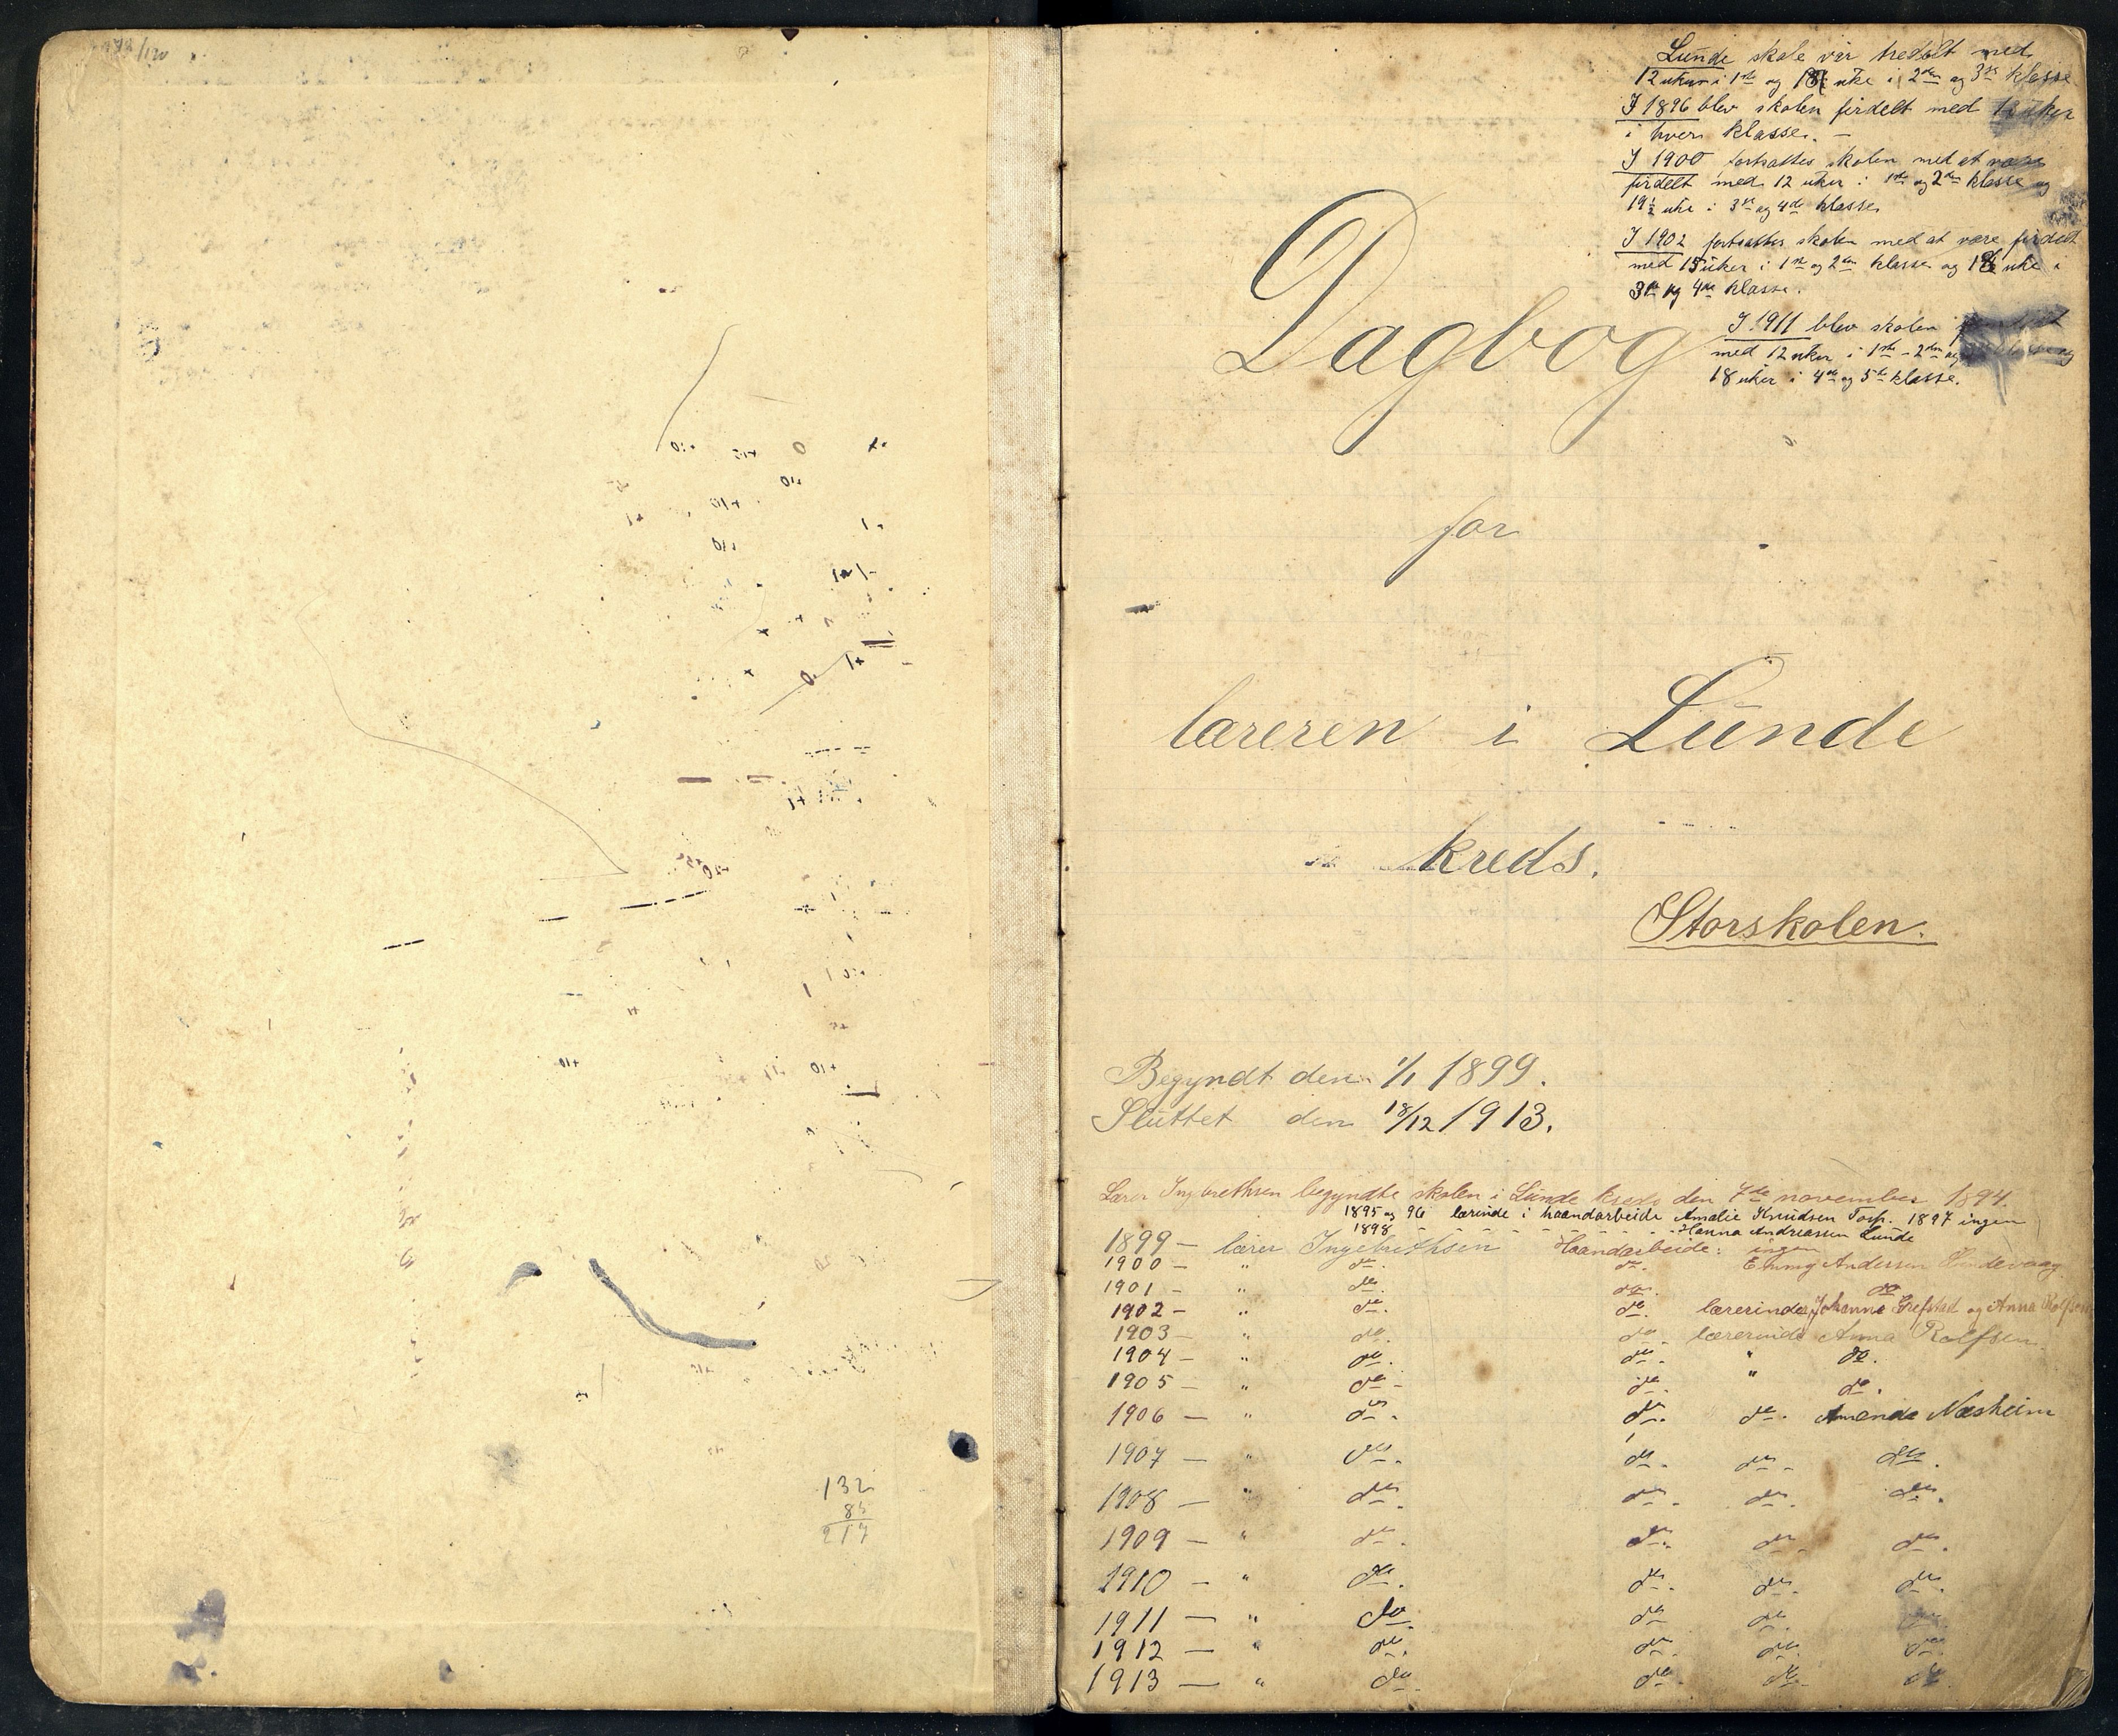 132
85
217
Lunde skole var tredelt med
12 uker i 1ste og 18 uke i 2den og 3die klasse
I 1896 blev skolen firdelt med 12 uker
i hver klasse. –
I 1900 fortsattes skolen med at være
firdelt med 12 uker i 1ste og 2den klasse og
19½ uke i 3die og 4de klasse
I 1902 fortsattes skolen med at være firdelt
med 15 uker i 1ste og 2den klasse og 18 uke i
3die og 4de klasse.
I 1911 blev skolen
med 12 uker i 1ste - 2den og
18 uker i 4de og 5te klasse.
Dagbog
for
læreren i Lunde
kreds.
Storskolen.
Begyndt den 1/1 1899.
Sluttet den 18/12 1913.
Lærer Ingebrethsen begyndte skolen i Lunde kreds den 7de november 1894.
1895 og 96 lærinde i haandarbeide Amalie Knudsen Torp. 1897 ingen
1898 - - - - - - Hanna Andreassen Lunde
1899 – lærer Ingebrethsen Haandarbeide: ingen
1900 – " do. do. Emmy Andersen Lundevaag
1901 – " do. do. do
1902 – " do. do. lærerinde Johanne Grefstad og Anna Rolfsen
1903 – " do. do. lærerinde Anna Rolfsen
1904 – " do. do. " do.
1905 – " do. do. " do.
1906 – " do. do. do. Amanda Næsheim
1907 – " do. do. do. do.
1908 – " do. do. do. do.
1909 – " do. do. do. do.
1910 – " do. do. do. do.
1911 – " do. do do. do.
1912 – " do. do. do. do.
1913 – " do. do. do. do.